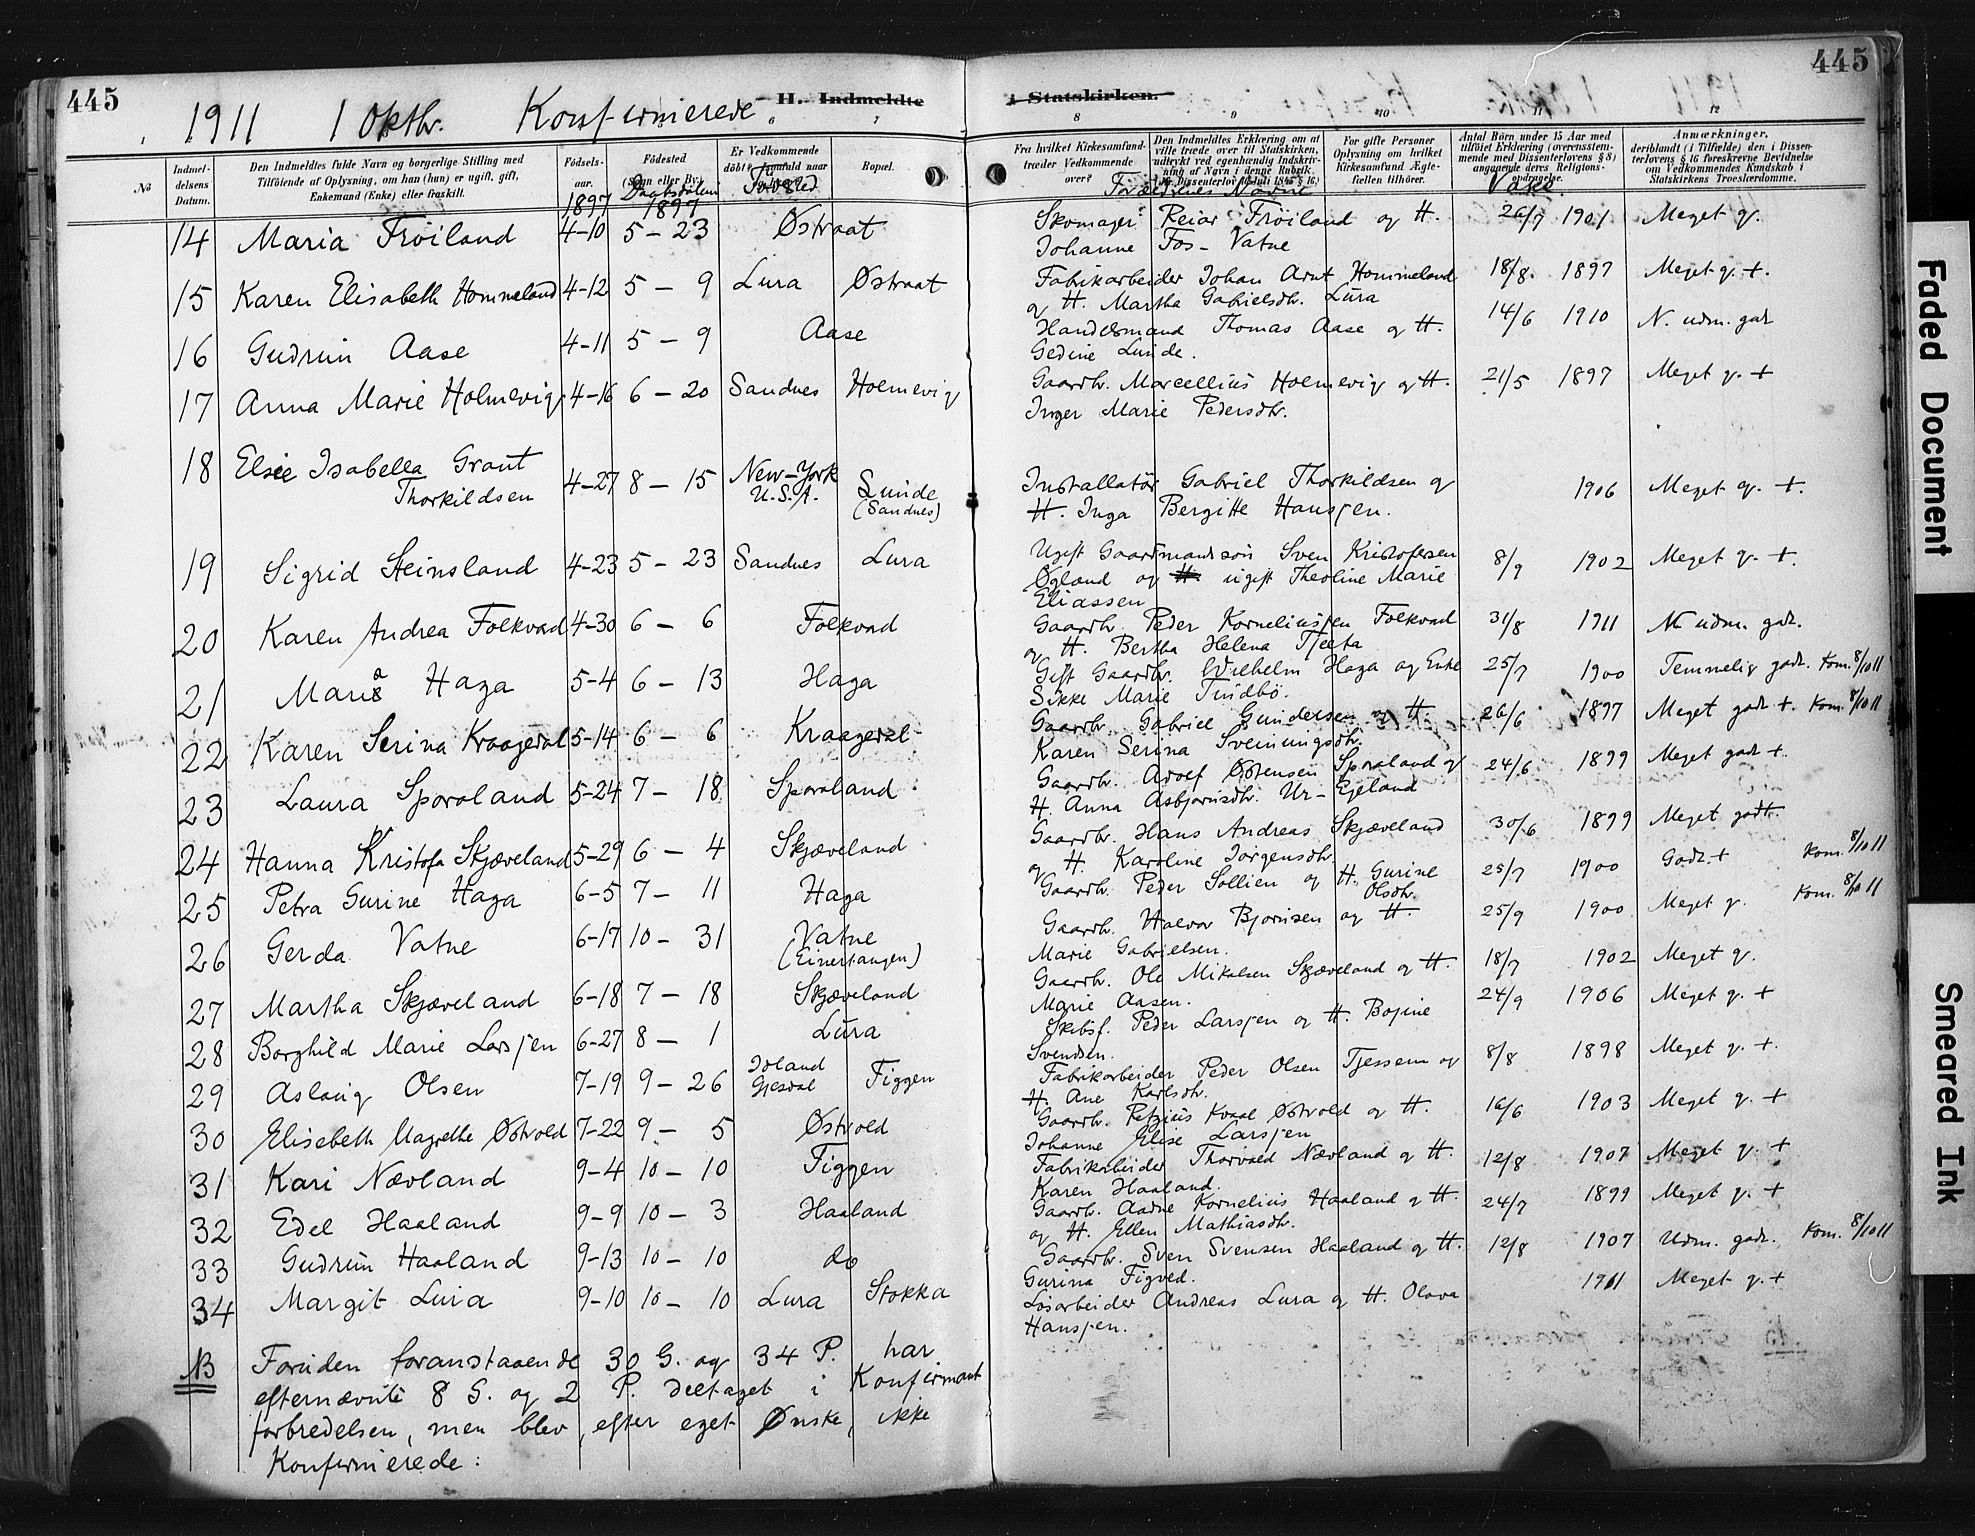 445
445
1911 1 Oktbr. Konfirmerede H. Indmeldte i Statskirken.
1 6 7 8 9 10 11 12
No
Indmeldelsens Datum.
Den Indmeldtes fulde Navn og borgerlige Stilling med
Tilföiende af Oplysning, om han (hun) er ugift, gift,
Enkemand (Enke) eller fraskilt.
Födselsaar.
1897
Födested
(Sogn eller By).
Daabsdatum
1897
Er Vedkommende
döbt?
Födested
Bopæl.
Fra hvilket Kirkesamfund
træder Vedkommende
over?
Den Indmeldtes Erklæring om at
ville træde over til Statskirken,
udtrykt ved egenhændig Indskrivning
af Navn i denne Rubrik.
Forældrenes Navne
For gifte Personer
Oplysning om hvilket
Kirkesamfund Ægtefællen
tilhörer.
Antal Börn under 15 Aar med
tilföiet Erklæring (overensstemmende
med Dissenterlovens § 8)
angaaende deres Religionsopdragelse.
Vakc.
Anmærkninger,
deriblandt (i Tilfælde) den i Dissenterlovens
§ 16 foreskrevne Bevidnelse
om Vedkommendes Kundskab i
Statskirkens Troeslærdomme.
14 Maria Fröiland 4-10 5 - 23 Østraat Skomager Reiar Fröiland og H. 26/7 1901 Meget g.
Johanne Fos-Vatne
15 Karen Elisabeth Hommeland 4-12 5 - 9 Lura Østraat Fabrikarbeider Johan Arnt Hommeland 18/8. 1897 Meget g. +.
og H. Martha Gabrielsdtr. Lura
16 Gudrun Aase 4-11 5 - 9 Aase Handelsmand Thomas Aase og H. 14/6 1910 N. udm. godt
Gedine Lunde.
17 Anna Marie Holmevig 4-16 6 - 20 Sandnes Holmevig Gaardbr. Marcellius Holmevig og H. 21/5 1897 Meget g. +
Inger Marie Pedersdtr.
18 Elsie Isabella Grant
Thorkildsen 4-27 8 - 15 New-York
U.S.A. Lunde
(Sandnes) Installatör Gabriel Thorkildsen og 1906 Meget g. +.
H. Inga Bergitte Hansen.
19 Sigrid Steinsland 4-23 5 - 23 Sandnes Lura Ugift Gaardmandssön Sven Kristofersen 8/9 1902 Meget g. +.
Øgland og H. ugift Theoline Marie
Eliassen
20 Karen Andrea Folkvord 4-30 6 - 6 Folkvord Gaardbr. Peder Korneliussen Folkvord 31/8 1911 N. udm. godt.
og H. Bertha Helena Tjelta
21 Maria Haga 5-4 6 - 13 Haga Gift Gaardbr. Wilhelm Haga og Enke 25/7 1900 Temmelig godt. Kom. 8/10 11
Sikke Marie Tindbö.
22 Karen Serina Kraagedal 5-14 6 - 6 Kraagedal Gaardbr. Gabriel Gundersen og H. 26/6 1897 Meget godt +. Kom. 8/10 11
Karen Serina Sveinungsdtr.
23 Laura Sporaland 5-24 7 - 18 Sporaland Gaardbr. Adolf Østensen Sporaland og 24/6 1899 Meget godt +.
H. Anna Asbjörnsdtr. Ur-Egeland
24 Hanna Kristofa Skjæveland 5-29 6 - 4 Skjæveland Gaardbr. Hans Andreas Skjæveland 30/6 1899 Meget godt.
og H. Karoline Jörgensdtr.
25 Petra Gurine Haga 6-5 7 - 11 Haga Gaardbr. Peder Sollien og H. Gurine Olsdtr. 25/7 1900 Godt. + Kom. 8/10 11
26 Gerda Vatne 6-17 10 - 31 Vatne
(Einertangen) Gaardbr. Halvor Bjørnsen og H. 25/9 1900 Meget g. Kom. 8/10 11
Marie Gabrielsen.
27 Martha Skjæveland 6-18 7 - 18 Skjæveland Gaardbr. Ole Mikalsen Skjæveland og H. 18/7 1902 Meget g.
Marie Aasen.
28 Borghild Marie Larssen 6-27 8 - 1 Lura Skibsf. Peder Larssen og H. Bojine 24/9 1906 Meget g. +
Svendsen.
29 Aslaug Olsen 7-19 9 - 26 Joland
Gjesdal Figgen Fabrikarbeider Peder Olsen Tjessem og 8/8 1898 Meget g. +.
H. Ane Karlsdtr.
30 Elisabeth Magrethe Østvold 7-22 9 - 5 Østvold Gaardbr. Retzius Kvaal Østvold og H. 16/6 1903 Meget g. +
Johanne Elise Larssen
31 Kari Nævland 9-4 10 - 10 Figgen Fabrikarbeider Thorvald Nævland og H. 12/8 1907 Meget g. +
Karen Haaland.
32 Edel Haaland 9-9 10 - 3 Haaland Gaardb. Aadne Kornelius Haaland og H. 24/7 1899 Meget g. +
og H. Ellen Mathiasdtr.
33 Gudrun Haaland 9-13 10 - 10 do Gaardbr. Sven Svensen Haaland og H. 12/8 1907 Udm. godt. Kom. 8/10 11
Gurina Figved.
34 Margit Lura 9-10 10 - 10 Lura Stokka Lösarbeider Andreas Lura og H. Olava 1911 Meget g. +
Hanssen.
NB Foruden foranstaaende 30 G. og 34 P. har
efternævnte 8 G. og 2 P. deltaget i Konfirmant
forbredelsen, men blev, efter eget Ønske, ikke
Konfirmerede:
Faded Document
Smeared Ink